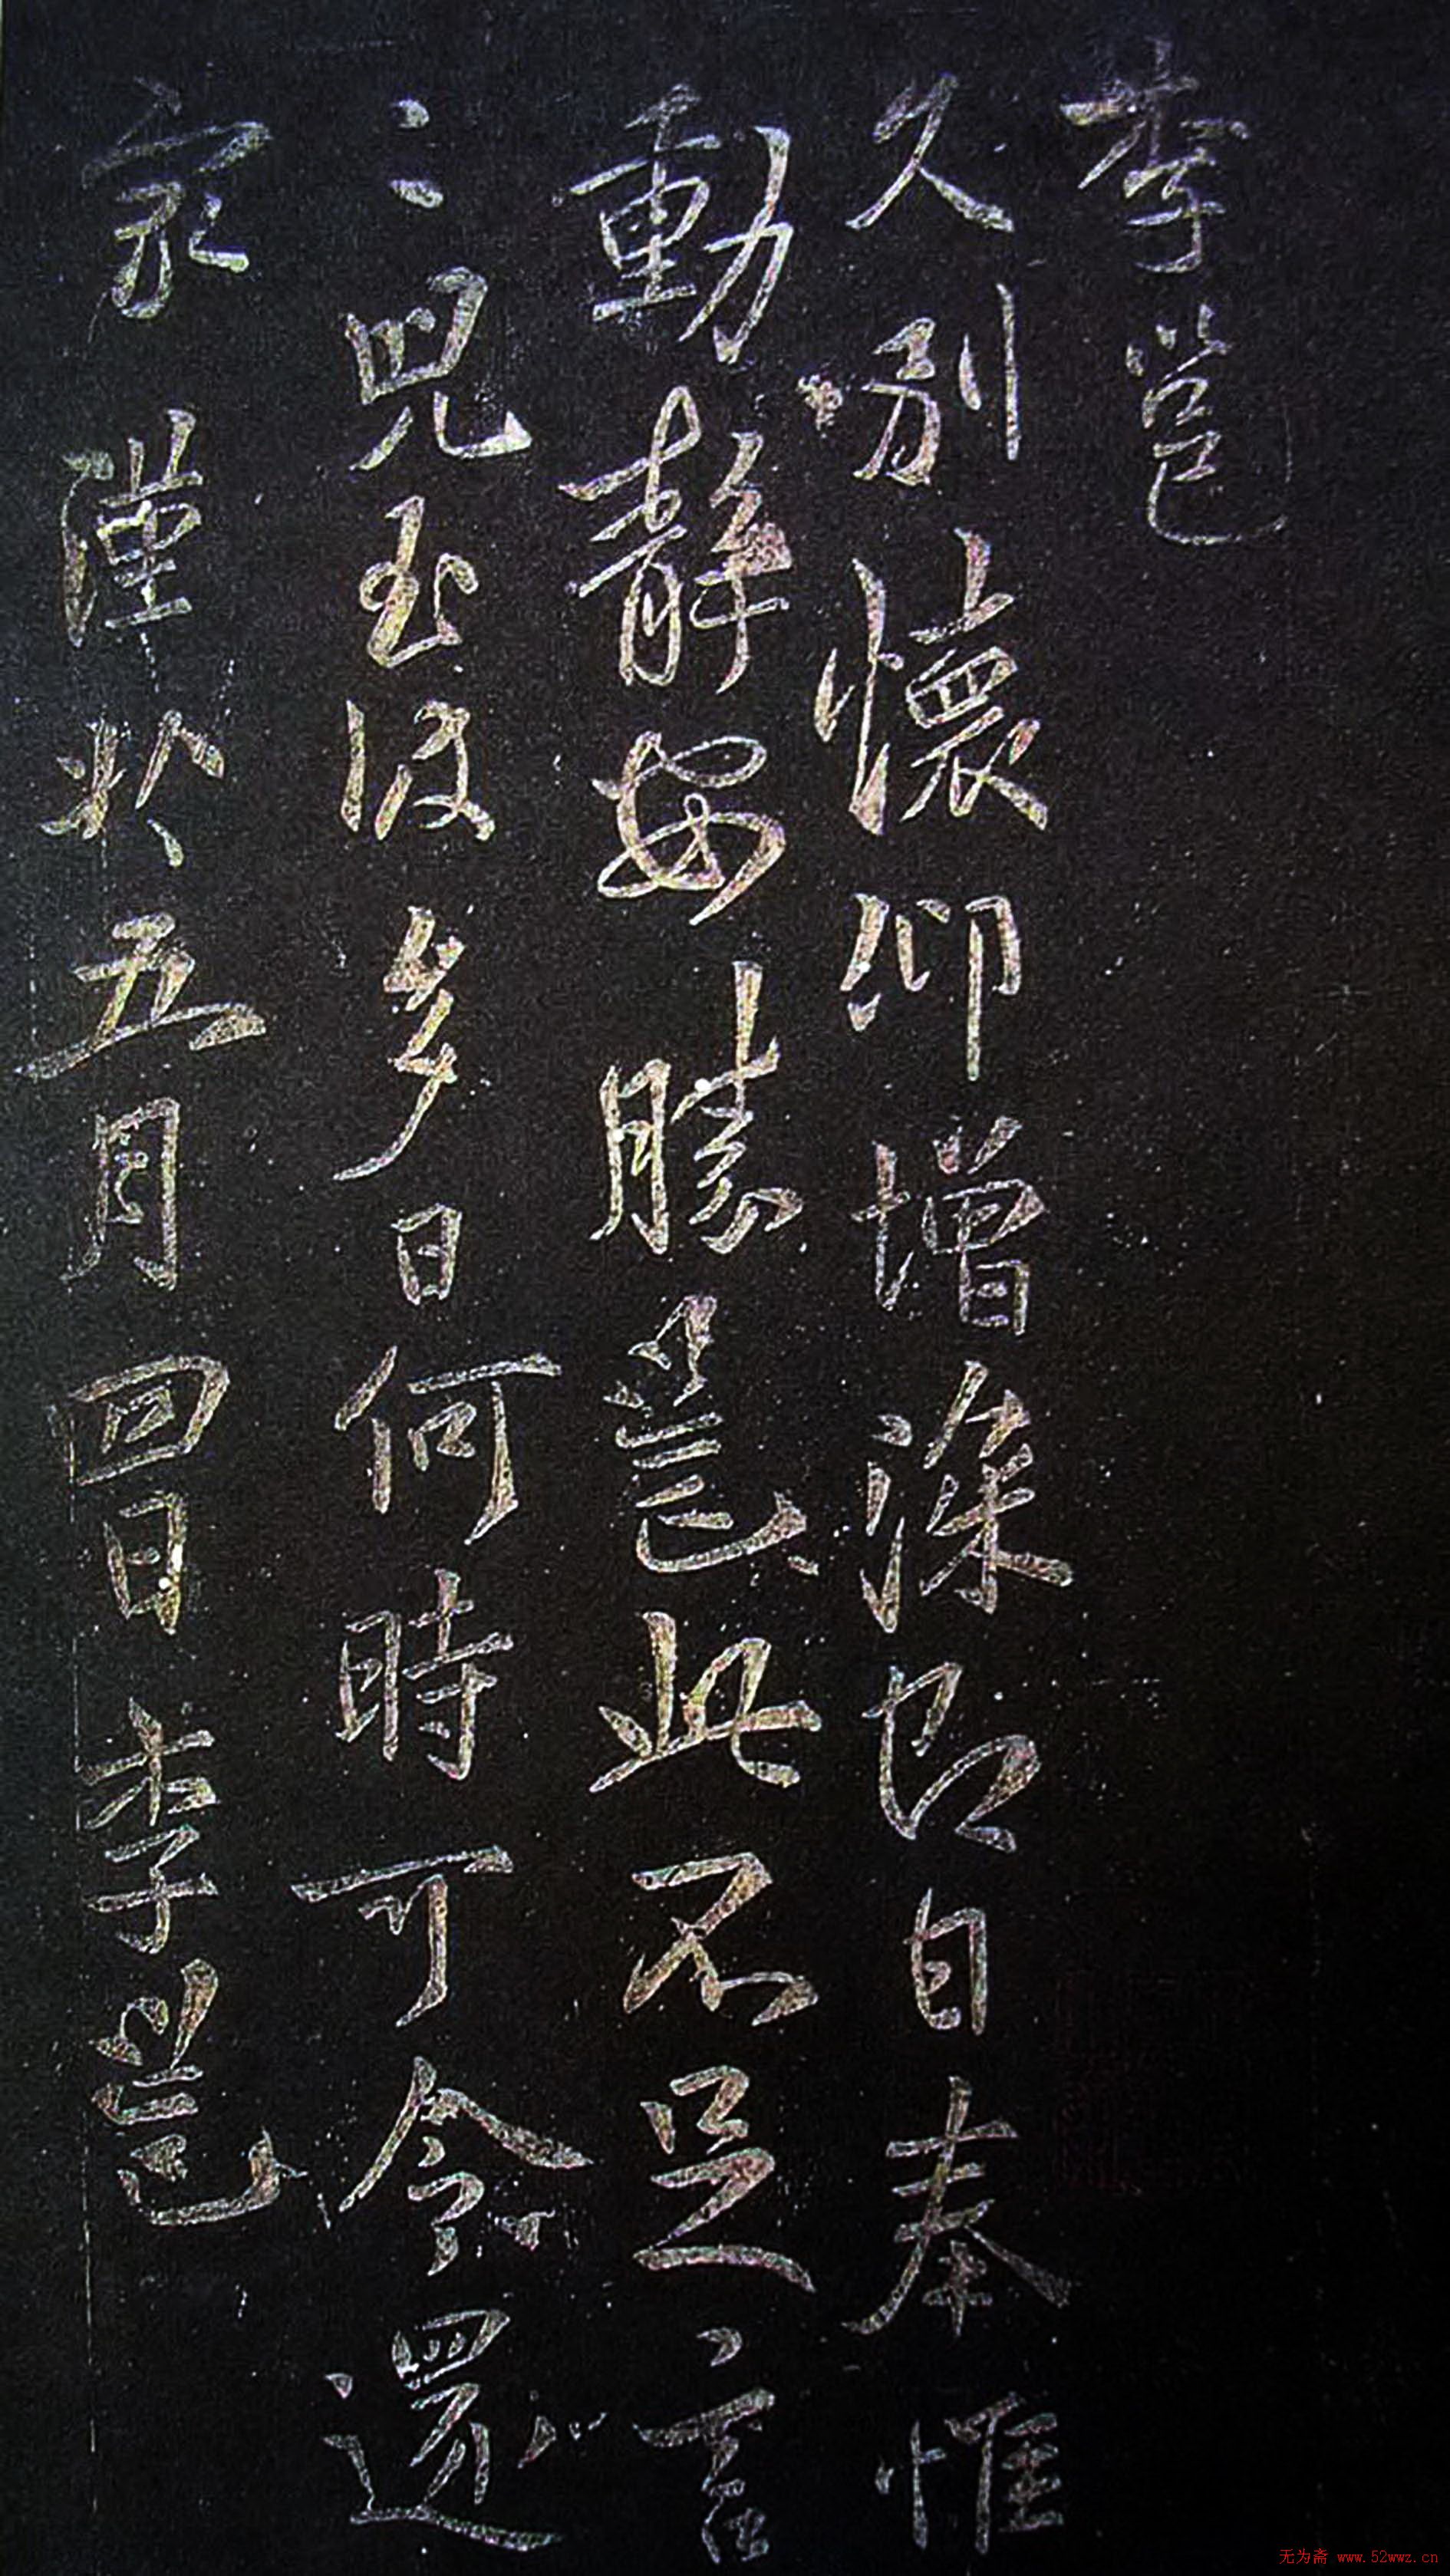 李邕
久別懷仰增深即日奉惟
動靜安勝邕此不足言
〻兒至彼多日何時可令還
家謹狀五月四日李邕
无为斋 www.52wwz.cn